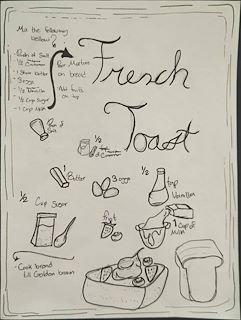 Mix the following
bellow?
- Pinch of Salt
- ½ Cinnamon
- 1 Stick Butter
- 3 eggs
- ½ Vanilla
- ½ Cup Sugar
- 1 Cup Milk
Por Mixture
on bread
Add fruits
on top
Fresch
Toast
Pinch of
Salt
½ tsp
of Cinnamon
1 Butter
3 eggs
½ tsp
Vanilla
½
Cup Sugar
fruit
1 Cup of
Milk
- Cook bread
till Golden brown